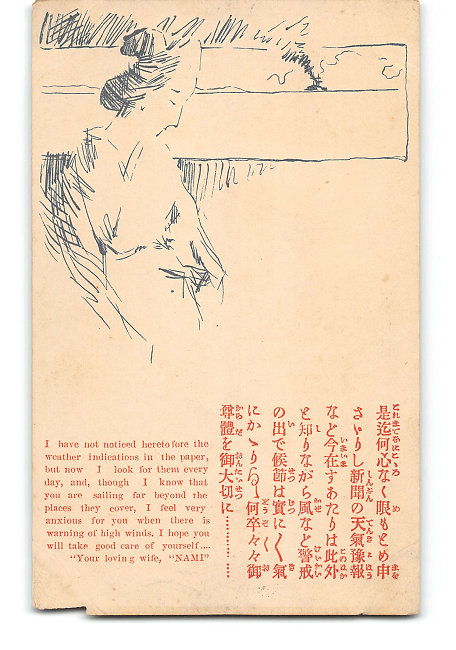 I have not noticed heretofore the
weather indications in the paper,
but now I look for them every
day, and, though I know that
you are sailing far beyond the
places they cover, I feel very
anxious for you when there is
warning of high winds. I hope you
will take good care of yourself....
"Your loving wife, "NAMI"
是迄何心なく眼もとめ申
さゝりし新聞の天氣豫報
など今在すあたりは此外
と知りながら風など警戒
の出で候節は實に〱氣
にかゝり 何卒々々御
尊體を御大切に……………